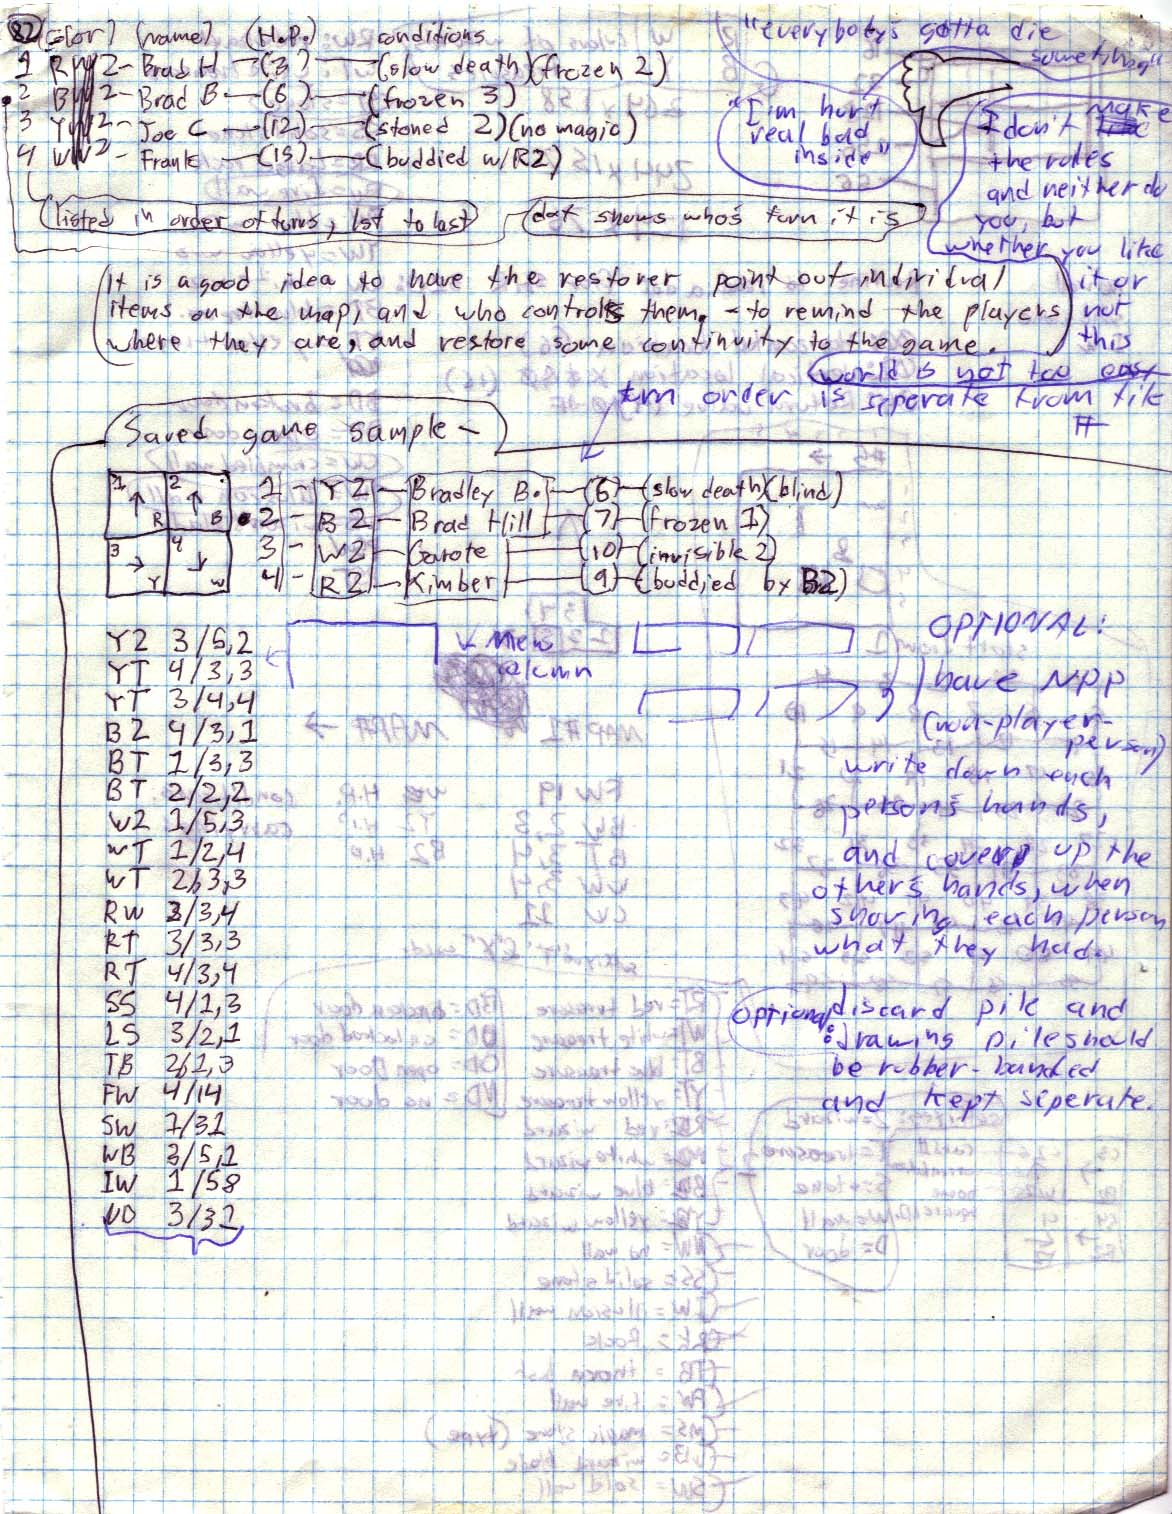 82 (color) (name) (H.P.) conditions
1 RW2 - Brad H - (3) - (slow death)(frozen 2)
2 BW2 - Brad B. - (6) - (frozen 3)
3 YW2 - Joe C - (12) - (stoned 2)(no magic)
4 WW2 - Frank - (15) - (buddied w/R2)
listed in order of turns, 1st to last
dot shows who's turn it is
"everybody's gotta die
sometime"
"I'm hurt
real bad
inside"
I don't make
the rules
and neither do
you, but
whether you like
it or
not
this
world is not too easy
It is a good idea to have the restorer point out individual
items on the map, and who controls them, - to remind the players
where they are, and restore some continuity to the game.
turn order is seperate from tile
#
Saved game sample -
1 R 2 B
3 Y 4 W
1 - Y2 - Bradley B. - (6) - (slow death)(blind)
2 - B2 - Brad Hill - (7) - (frozen 1)
3 - W2 - Garote - (10) - (invisible 2)
4 - R2 - Kimber - (9) - (buddied by B2)
Y2 3/5,2
YT 4/3,3
YT 3/4,4
B2 4/3,1
BT 1/3,3
BT 2/2,2
W2 1/5,3
WT 1/2,4
WT 2/3,3
RW 3/3,4
RT 3/3,3
RT 4/3,4
SS 4/1,3
LS 3/2,1
TB 2/1,3
FW 4/14
SW 1/31
WB 3/5,1
IW 1/58
UD 3/32
new
column
OPTIONAL:
have NPP
(non-player-
person)
write down each
person's hands,
and cover up the
other's hands, when
showing each person
what they had.
Optional:
discard pile and
drawing pile should
be rubber-banded
and kept seperate.